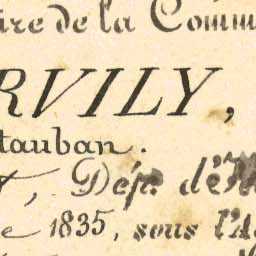 ire de la Comm
RVILY,
tauban.
t, Dép. d'Il
e 1835, sous l'A